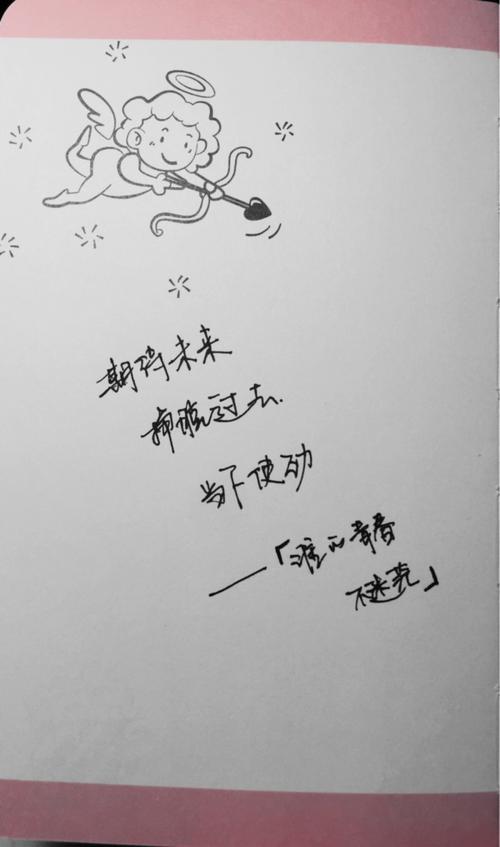 期待未来
拥抱过去.
当下使劲
——「谁的青春
不迷茫」